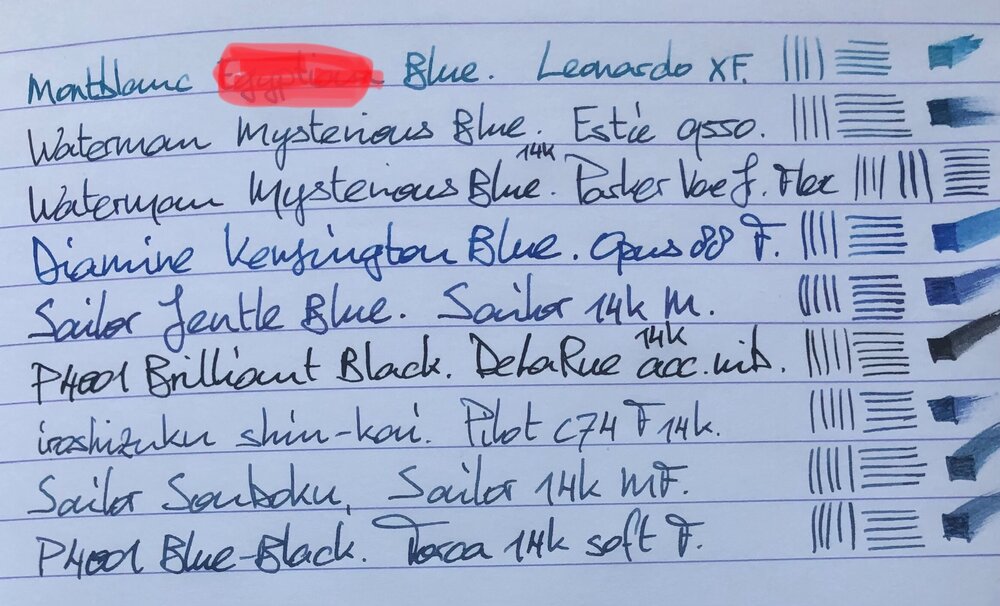 Montblanc Egyptian Blue. Leonardo XF.
Waterman Mysterious Blue. Estie 9550.
Waterman Mysterious Blue. 14k Parker Vac f. Flex
Diamine Kensington Blue. Opus 88 F.
Sailor Jentle Blue. Sailor 14k M.
P4001 Brilliant Black. DeLaRue 14k acc. nib.
iroshizuku shin-kai. Pilot C74 F 14k.
Sailor Souboku, Sailor 14k MF.
P4001 Blue-Black. 14k soft F.